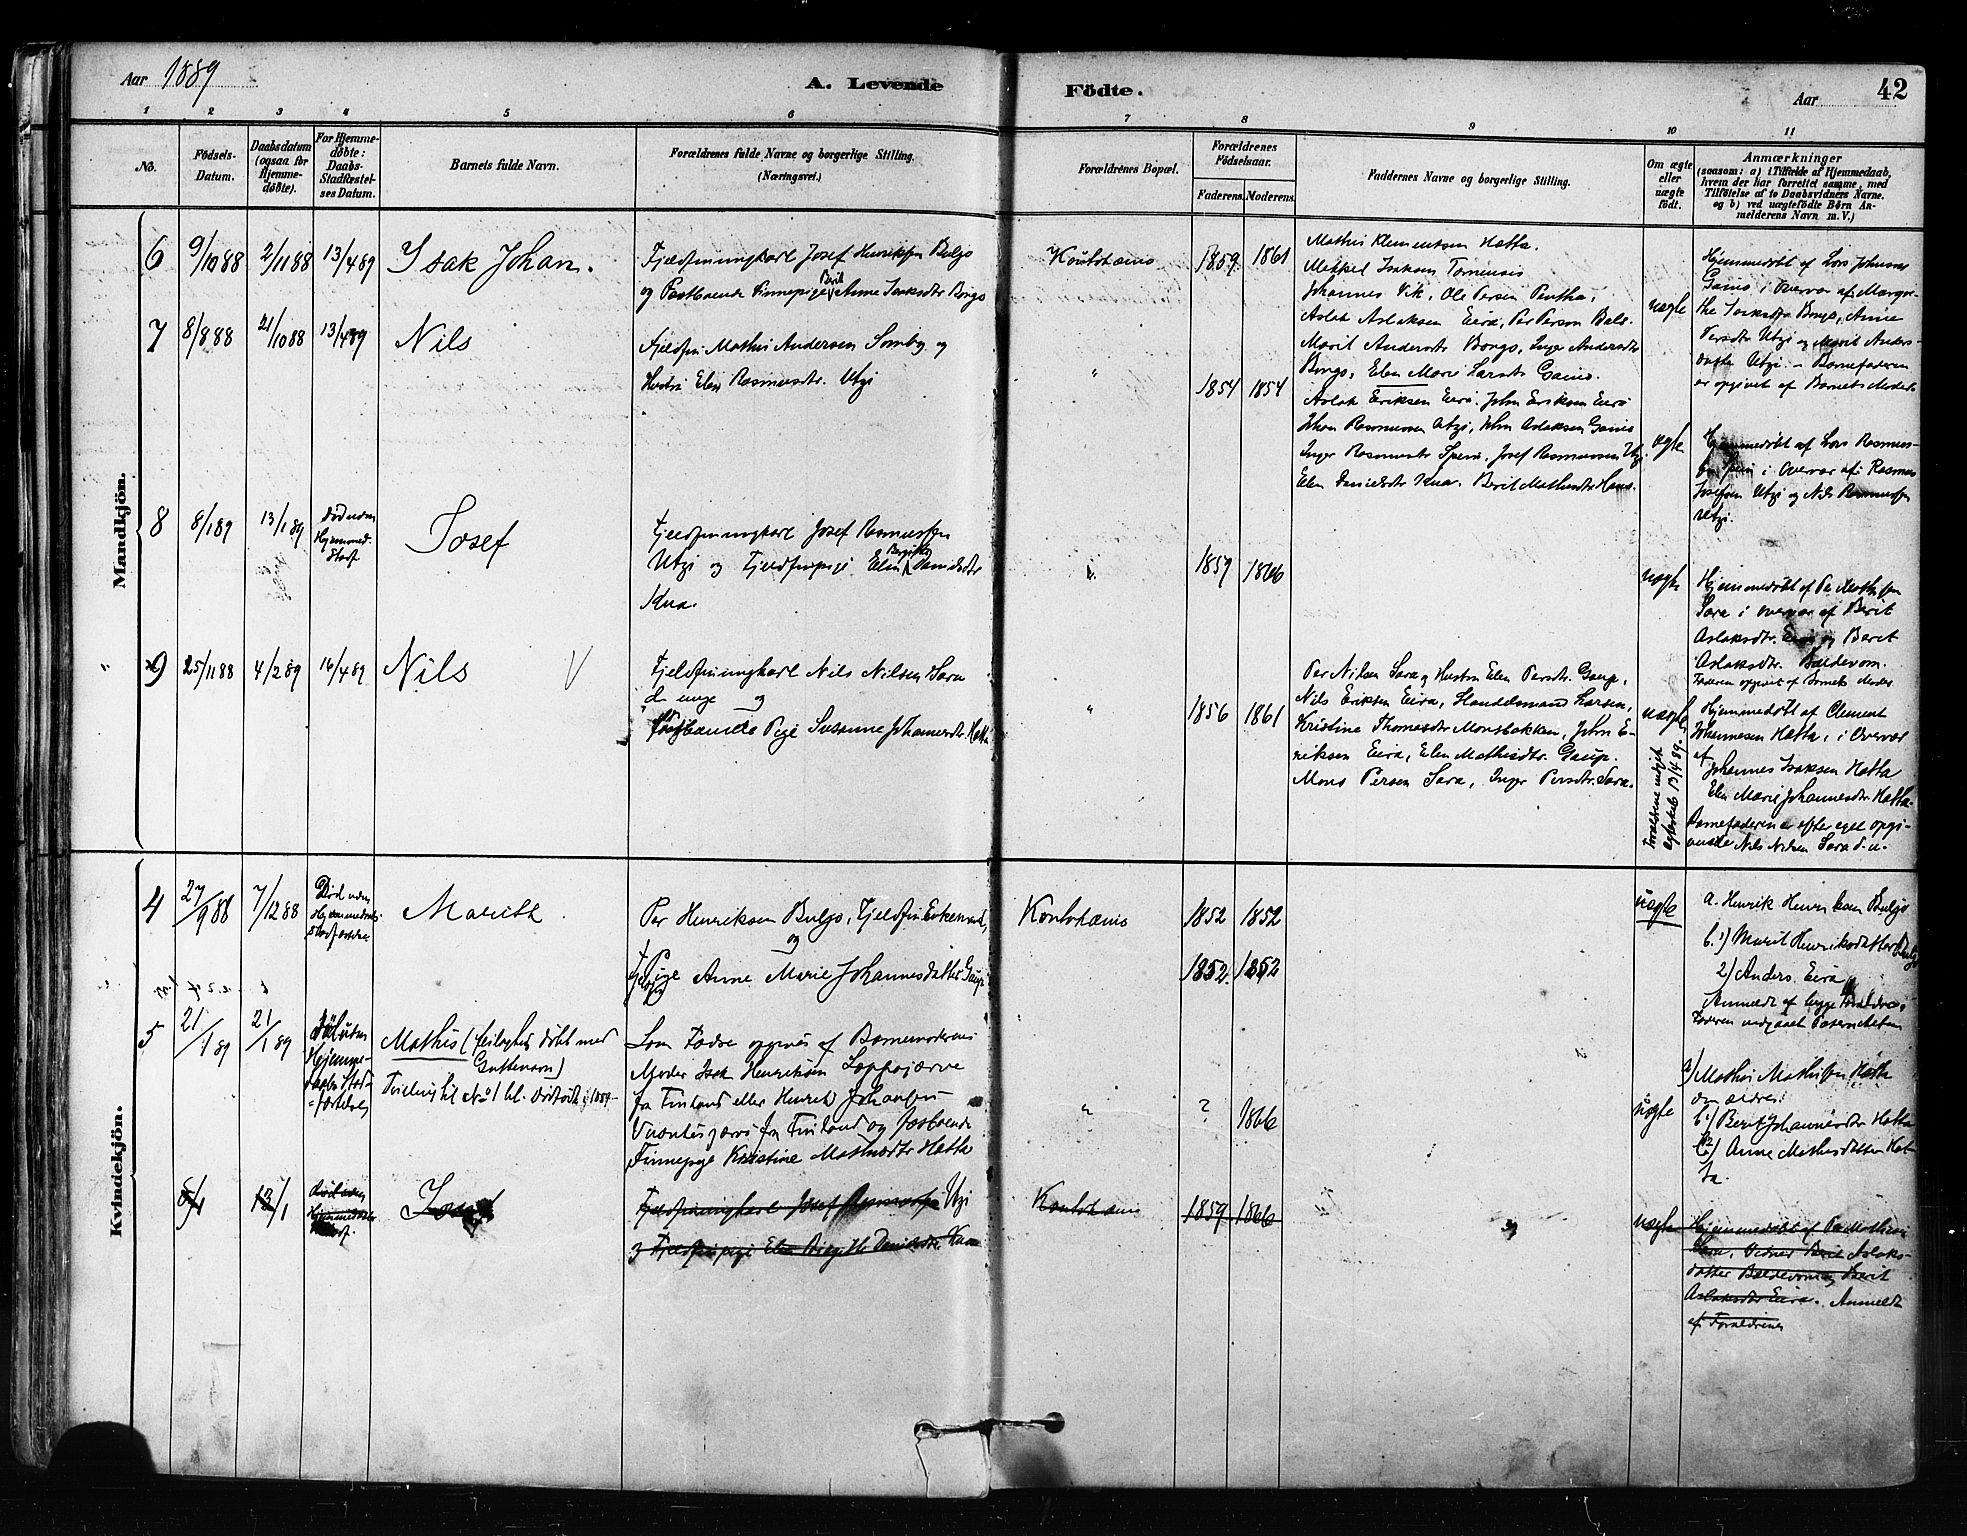 Aar 1889
A. Levende
Födte.
Aar
42
1 2 3 4 5 6 7 8 9 10 11
No.
Födsels-
Datum.
Daabsdatum
(ogsaa for
Hjemme-
döbte).
For Hjemme-
döbte:
Daabs-
Stadfæstel-
ses Datum.
Barnets fulde Navn.
Forældrenes fulde Navne og borgerlige Stilling.
(Næringsvei.)
Forældrenes Bopæl.
Forældrenes
Födselsaar.
Faderens. Moderens.
Faddernes Navne og borgerlige Stilling.
Om ægte
eller
uægte
födt.
Anmærkninger
(saasom: a) i Tilfælde af Hjemmedaab,
hvem der har forrettet samme, med
Tilföielse af to Daabsvidners Navne.
og b) ved uægtefödte Börn An-
melderens Navn m. V.)
Mandkjön.
6 9/10 88 2/11 88 13/4 89 Isak Johan.
Fjeldfinungkarl Josef Henriksen Buljo
og Fastboende Finnepige Berit Anne Isaksdtr Bongo
1859 1861
Mathis Klementsen Hætta.
Mikkel Isaksen Tornensis
Johannes Vik, Ole Persen Pentha,
Aslak Aslaksen Eira, Per Persen Bals.
Marit Andersdtr Bongo, Inger Andersdtr
Bongo, Elen Marie Larsdtr Gaino.
uægte
Hjemmedøbt af Lars Johnsen
Gaino i Overvær af Margre-
the Isaksdtr Bongo, Anne
Persdtr Utzi og Marit Anders-
datter Utzi. - Barnefaderen
er opgivet af Barnets Moder
7 8/8 88 21/10 88 13/4 89 Nils
Fjeldfin Mathis Andersen Somby og
Hustru Elen Rasmusdtr. Utzi
"
1854 1854
Aslak Eriksen Eira. John Eriksen Eira
Johan Rasmussen Utzi, John Aslaksen Gaino
Inger Rasmusdtr Spein, Josef Rasmussen Utzi
Elen Danielsdtr Kua. Berit Mathisdtr
ægte
Hjemmedøbt af Lars Rasmus-
sen Spein i Overvær af: Rasmus
Josefsen Utzi og Nils Rasmussen
Utzi.
8 8/1 89 13/1 89 Død uden
Hjemmed.
Stadf.
Josef
Fjeldfinungkarl Josef Rasmussen
Utzi og Fjeldfinpige Elen Birgithe Danielsdtr
Kua.
"
1859 1866
uægte
Hjemmedøbt af Per Mathisen
Sara i Overvær af Berit
Aslaksdtr. Eira og Berit
Aslaksdtr. Baldevom.
Faderen opgivet af Barnets Moder
9 25/11 88 4/2 89 16/4 89 Nils V
Fjeldfinungkarl Nils Nilsen Sara
d. unge og
fastboende Pige Susanne Johannesdtr Hætta
"
1856 1861
Per Nilsen Sara og Hustru Elen Persdtr. Gaup,
Nils Eriksen Eira, Handelsmand Larsen,
Kristine Thomasdtr Monsbakken, John E-
riksen Eira, Elen Mathisdtr. Gaup.
Mons Persen Sara, Inger Persdtr. Sara.
uægte
Forældrene viet
13/4 89.
Hjemmedøbt af Clement
Johannesen Hætta, i Overvær
af
Johannes Isaksen Hætta
Elen Marie Johannesdtr Hætta.
Barnefaderen er efter eget opgi-
vende Nils Nilsen Sara d. u.
Kvindekjön.
4 27/9 88 7/12 88 Død uden
Marith
Per Henriksen Buljo, Fjeldfin Enkemand,
og
Pige Anne Marie Johannesdatter Gaup
1852 1852
1852. 1852
uægte
a. Henrik Henriksen Buljo
b. 1) Marit Henriksdatter Buljo
2) Anders Eira
Anmeldt af begge Forældrene;
5 21/1 89 21/1 89 Død uden
Hjemme-
daabs Stad-
fæstelse
Mathis (feilagtig døbt med
Guttenavn)
Tvilling til No 1 bl. Dødfødte i 1889.
Som Fader opgives af Barnemoderens
Moder Isak Henriksen Soppajærve
fra Finland eller Henrik Johansen
fra Finland og fastboende
Finnepige Kristine Mathisdtr Hætta
"
? 1866
uægte
a) Mathis Mathisen Hætta
den ældre.
b. 1) Berit Johannesdtr Hætta
2) Anne Mathisdatter Hæt-
ta.
8/1 13/1
Josef
Fjeldfinungkarl Josef Rasmussen Utzi
og Fjeldfinpige Elen Birgithe Danielsdtr. Kua
1859 1866
uægte
Hjemmedøbt af Per Mathisen
Sara, Vidner Berit Aslaks-
datter Baldevom og Berit
Aslaksdtr Eira. Anmeldt
af Forældrene